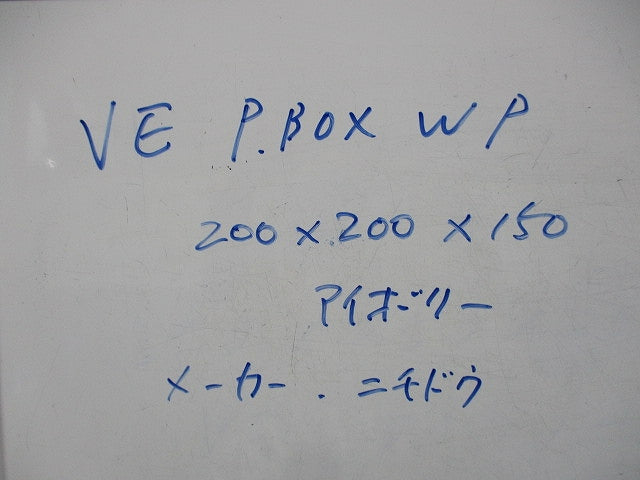 VE P.BOX WP
200×200×150
アイボリー
メーカー．ニチドウ